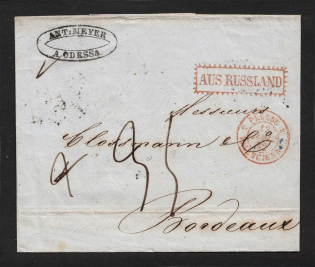 ANT: MEYER
A ODESSA
AUS RUSSLAND
Messieurs
Clossmann & Co
Bordeaux